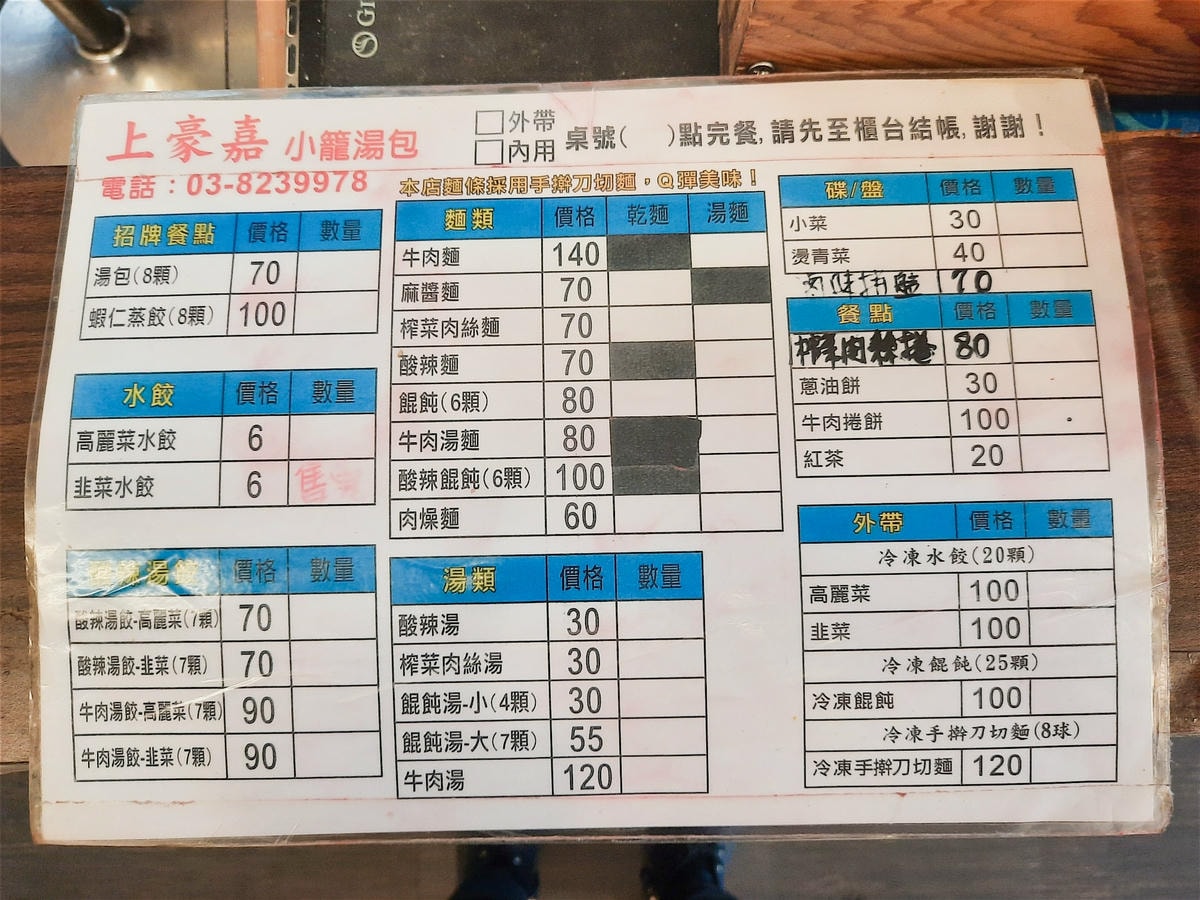 上豪嘉 小籠湯包
電話：03-8239978
外帶
內用
桌號(　)點完餐,請先至櫃台結帳,謝謝！
本店麵條採用手擀刀切麵，Q彈美味！
招牌餐點 價格 數量
湯包(8顆) 70
蝦仁蒸餃(8顆) 100
水餃 價格 數量
高麗菜水餃 6
韭菜水餃 6 售
價格 數量
酸辣湯餃-高麗菜(7顆) 70
酸辣湯餃-韭菜(7顆) 70
牛肉湯餃-高麗菜(7顆) 90
牛肉湯餃-韭菜(7顆) 90
麵類 價格 乾麵 湯麵
牛肉麵 140
麻醬麵 70
榨菜肉絲麵 70
酸辣麵 70
餛飩(6顆) 80
牛肉湯麵 80
酸辣餛飩(6顆) 100
肉燥麵 60
湯類 價格 數量
酸辣湯 30
榨菜肉絲湯 30
餛飩湯-小(4顆) 30
餛飩湯-大(7顆) 55
牛肉湯 120
碟/盤 價格 數量
小菜 30
燙青菜 40
滷味拼盤 70
餐點 價格 數量
榨菜肉絲捲 80
蔥油餅 30
牛肉捲餅 100
紅茶 20
外帶 價格 數量
冷凍水餃(20顆)
高麗菜 100
韭菜 100
冷凍餛飩(25顆)
冷凍餛飩 100
冷凍手擀刀切麵(8球)
冷凍手擀刀切麵 120